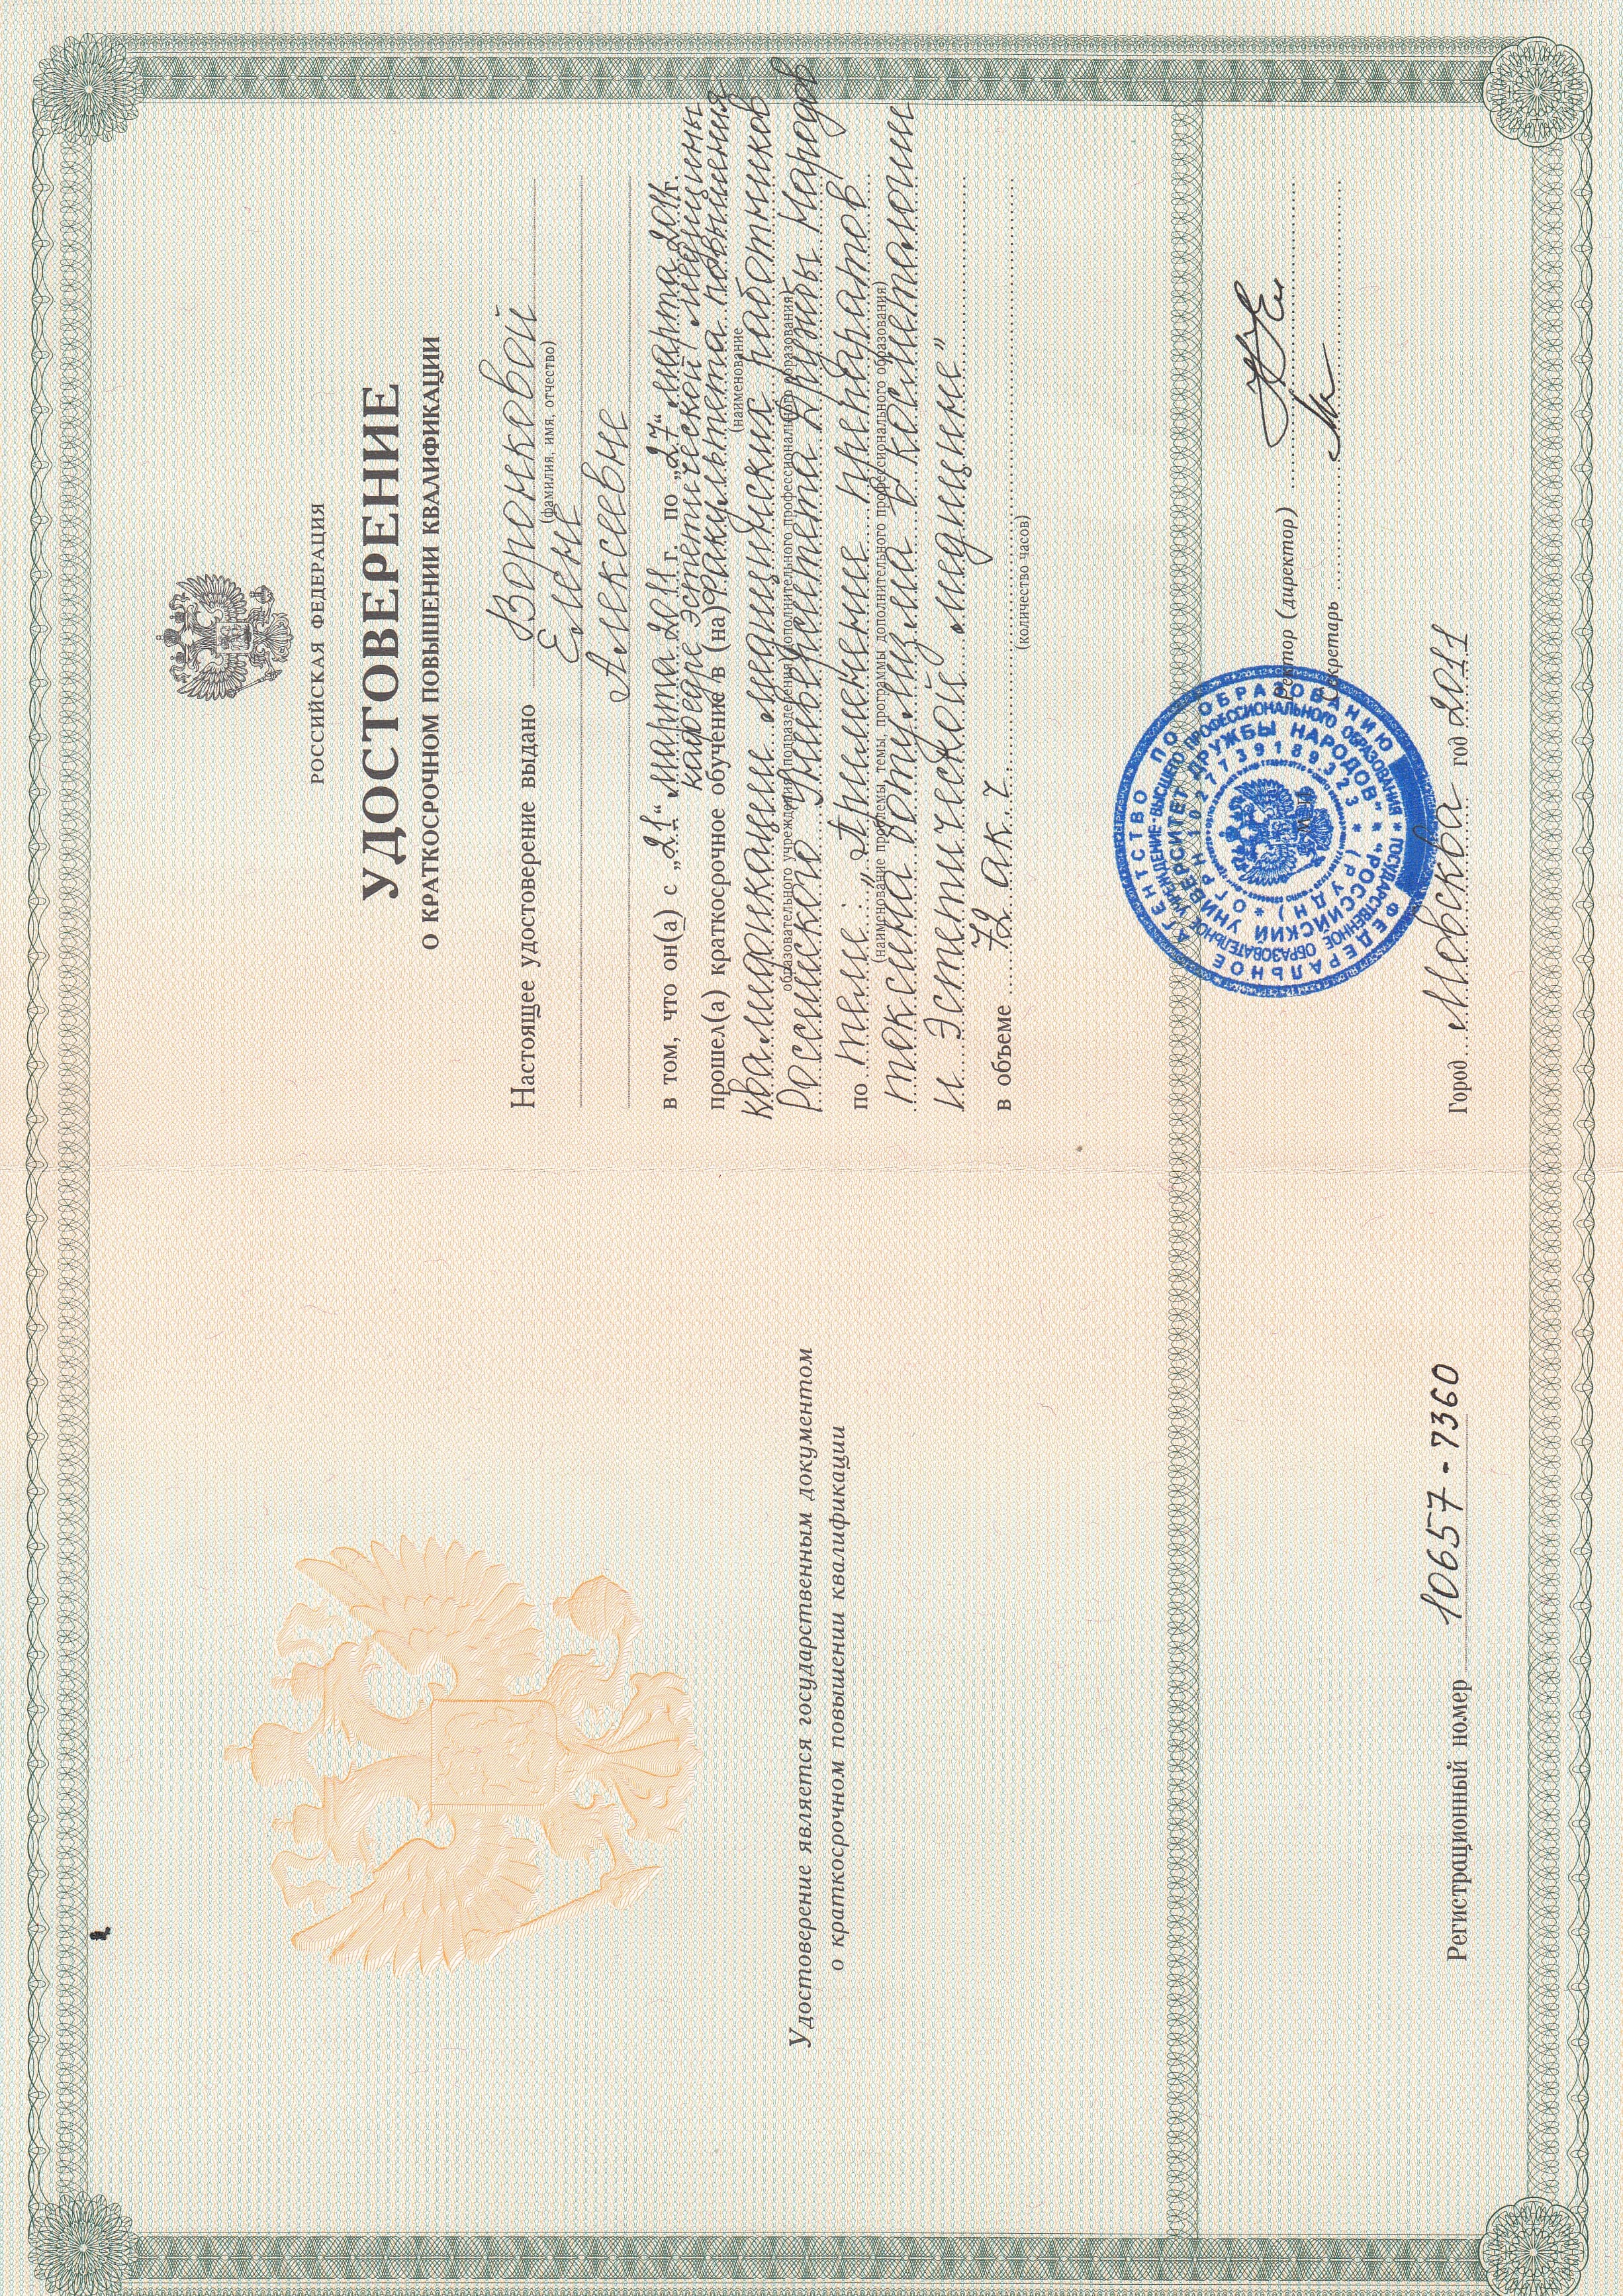 Удостоверение является государственным документом
о краткосрочном повышении квалификации
Регистрационный номер 10657-7360
РОССИЙСКАЯ ФЕДЕРАЦИЯ
УДОСТОВЕРЕНИЕ
О КРАТКОСРОЧНОМ ПОВЫШЕНИИ КВАЛИФИКАЦИИ
Настоящее удостоверение выдано Воронковой
(фамилия, имя, отчество)
Елене
Алексеевне
в том, что он(а) с „21“ марта 2011 г. по „27“ марта 2011г.
кафедре эстетической медицины
прошел(а) краткосрочное обучение в (на) факультета повышения
(наименование
квалификации медицинских работников
образовательного учреждения (подразделения) дополнительного профессионального образования)
Российского Университета Дружбы Народов
по теме: „Применение препаратов
(наименование проблемы, темы, программы дополнительного профессионального образования)
токсина ботулизма в косметологии
и Эстетической медицине”
в объеме 72 ак.ч.
(количество часов)
ФЕДЕРАЛЬНОЕ АГЕНТСТВО ПО ОБРАЗОВАНИЮ
ГОСУДАРСТВЕННОЕ ОБРАЗОВАТЕЛЬНОЕ УЧРЕЖДЕНИЕ ВЫСШЕГО ПРОФЕССИОНАЛЬНОГО ОБРАЗОВАНИЯ
"РОССИЙСКИЙ УНИВЕРСИТЕТ ДРУЖБЫ НАРОДОВ"
(РУДН) * ОГРН 1027739189323 *
М.П.
Ректор (директор)
Секретарь
Город Мовсква год 2011